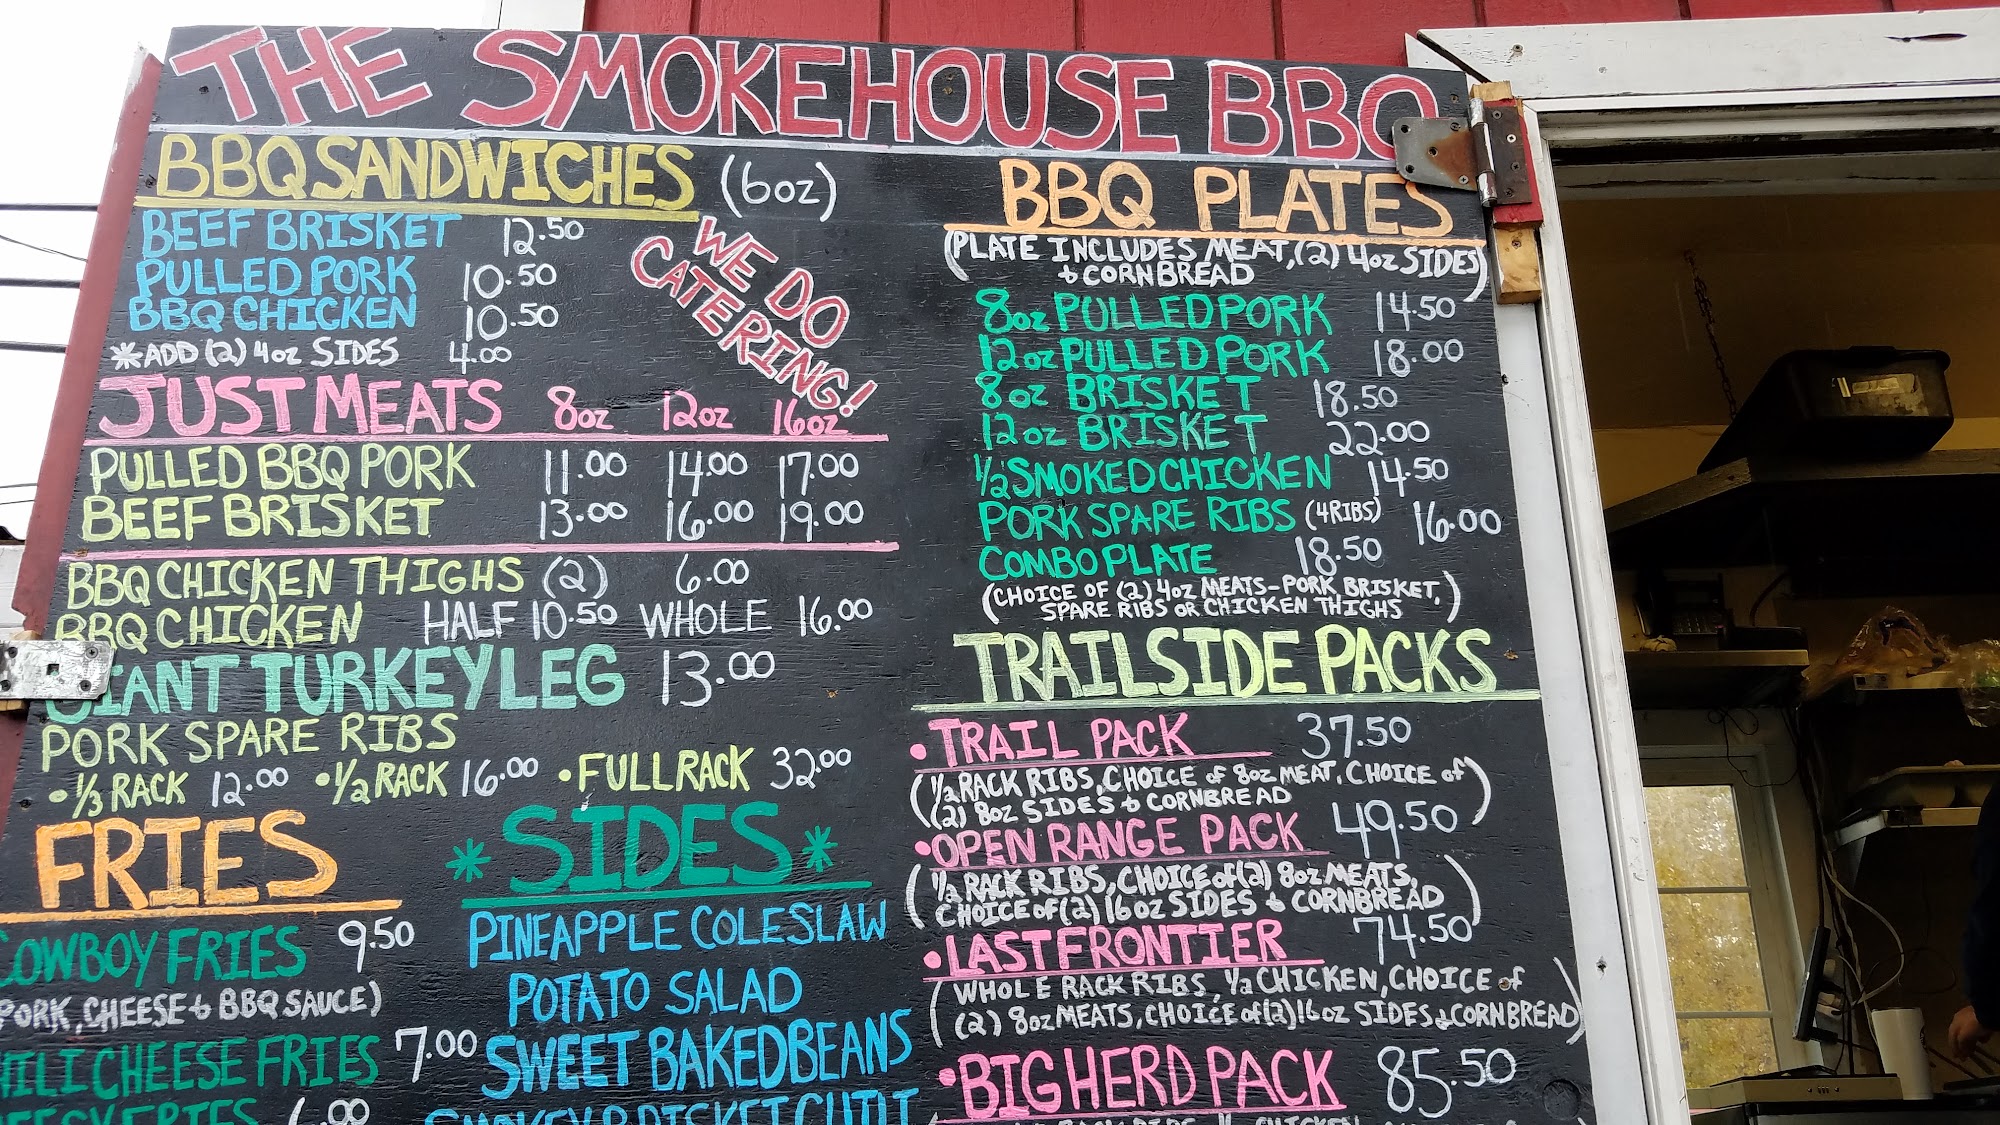 THE SMOKEHOUSE BBQ
BBQ SANDWICHES (6oz)
BEEF BRISKET 12.50
PULLED PORK 10.50
BBQ CHICKEN 10.50
*ADD (2) 4oz SIDES 4.00
WE DO
CATERING!
JUST MEATS 8oz 12oz 16oz
PULLED BBQ PORK 11.00 14.00 17.00
BEEF BRISKET 13.00 16.00 19.00
BBQ CHICKEN THIGHS (2) 6.00
BBQ CHICKEN HALF 10.50 WHOLE 16.00
GIANT TURKEY LEG 13.00
PORK SPARE RIBS
•1/3 RACK 12.00 •1/2 RACK 16.00 •FULL RACK 32.00
FRIES
COWBOY FRIES 9.50
PORK, CHEESE & BBQ SAUCE)
CHILI CHEESE FRIES 7.00
FRIES 6.00
*SIDES*
PINEAPPLE COLESLAW
POTATO SALAD
SWEET BAKED BEANS
SMOKEY BRISKET CHILI
BBQ PLATES
(PLATE INCLUDES MEAT, (2) 4oz SIDES
& CORNBREAD)
8oz PULLED PORK 14.50
12oz PULLED PORK 18.00
8oz BRISKET 18.50
12oz BRISKET 22.00
1/2 SMOKED CHICKEN 14.50
PORK SPARE RIBS (4 RIBS) 16.00
COMBO PLATE 18.50
(CHOICE OF (2) 4oz MEATS - PORK, BRISKET,
SPARE RIBS OR CHICKEN THIGHS)
TRAILSIDE PACKS
•TRAIL PACK 37.50
(1/2 RACK RIBS, CHOICE of 8oz MEAT, CHOICE of
(2) 8oz SIDES & CORNBREAD)
•OPEN RANGE PACK 49.50
(1/2 RACK RIBS, CHOICE of (2) 8oz MEATS,
CHOICE of (2) 16oz SIDES & CORNBREAD)
•LAST FRONTIER 74.50
(WHOLE RACK RIBS, 1/2 CHICKEN, CHOICE of
(2) 8oz MEATS, CHOICE of (2) 16oz SIDES & CORNBREAD)
•BIG HERD PACK 85.50